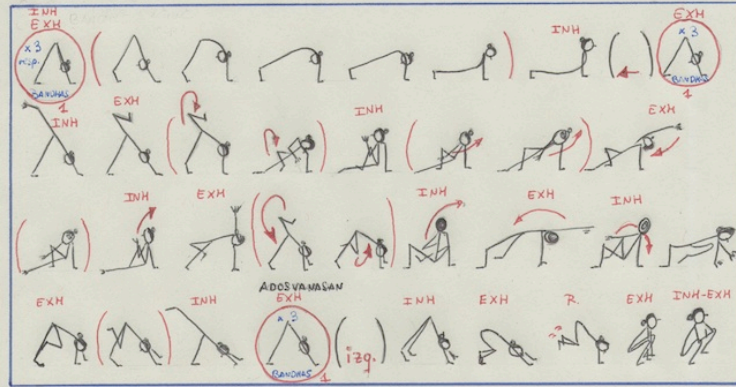 INH
EXH
x 3
resp.
BANDHAS
1
INH
EXH
x 3
BANDHAS
1
INH
EXH
INH
EXH
INH
EXH
INH
EXH
INH
EXH
INH
ADOSVANASAN
EXH
x 3
BANDHAS
1
(izq.)
INH
EXH
R.
EXH
INH-EXH